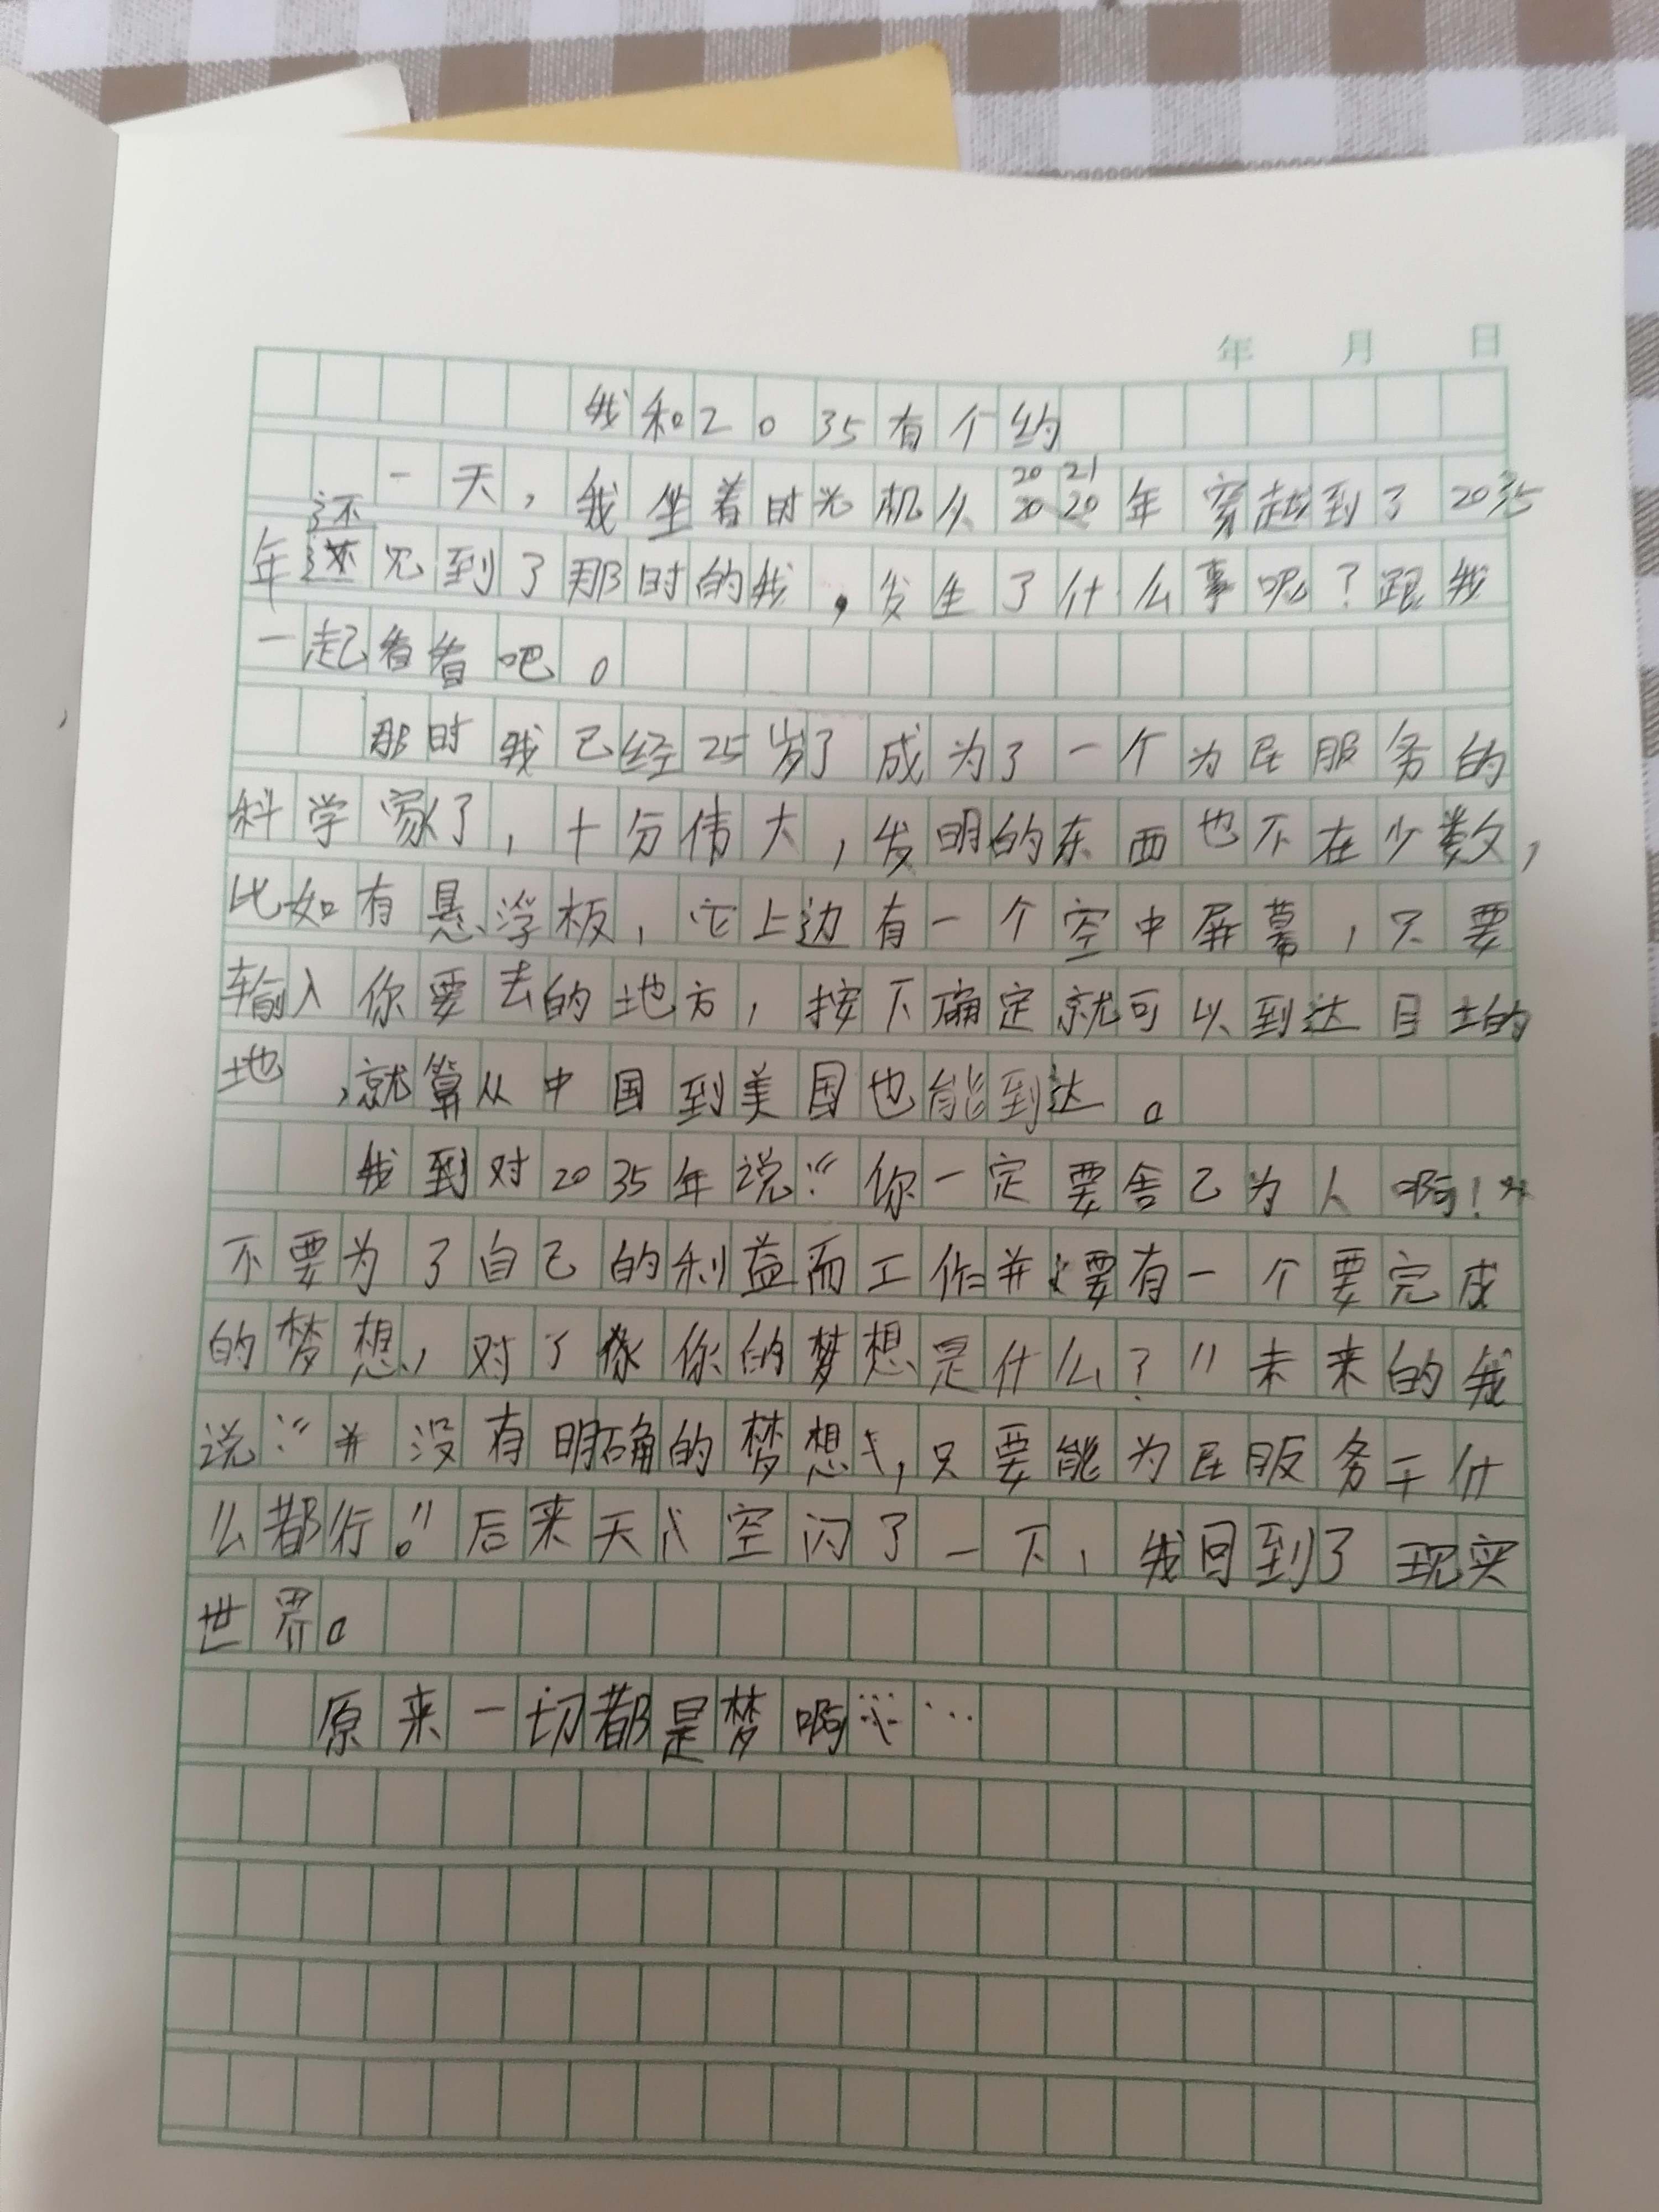 年 月 日
我和2035有个约
一天，我坐着时光机从2021年穿越到了2035
年还见到了那时的我，发生了什么事呢？跟我
一起看看吧。
那时我已经25岁了成为了一个为民服务的
科学家了，十分伟大，发明的东西也不在少数，
比如有悬浮板，它上边有一个空中屏幕，只要
输入你要去的地方，按下确定就可以到达目的
地，就算从中国到美国也能到达。
我到对2035年说：“你一定要舍己为人啊！
不要为了自己的利益而工作并要有一个要完成
的梦想，对了你的梦想是什么？”未来的我
说：“并没有明确的梦想，只要能为民服务干什
么都行。”后来天空闪了一下，我回到了现实
世界。
原来一切都是梦啊……